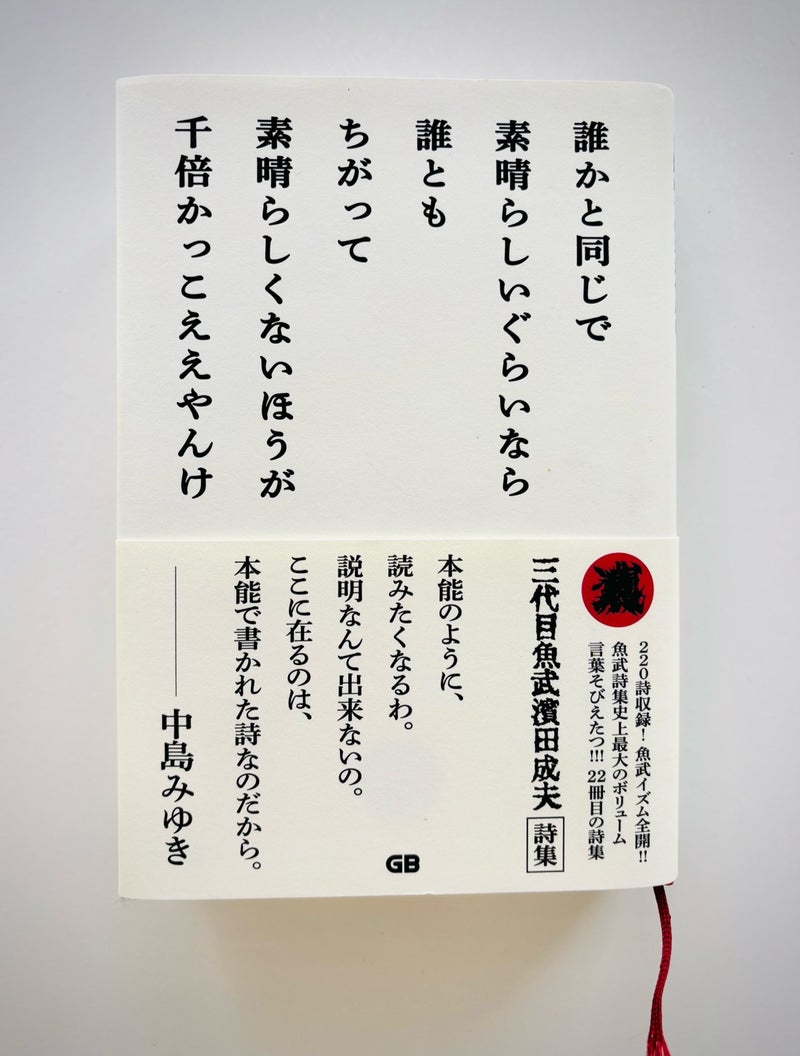 誰かと同じで
素晴らしいぐらいなら
誰とも
ちがって
素晴らしくないほうが
千倍かっこええやんけ
220詩収録！魚武イズム全開!!
魚武詩集史上最大のボリューム
言葉そびえたつ!!! 22冊目の詩集
三代目魚武濱田成夫
詩集
本能のように、
読みたくなるわ。
説明なんて出来ないの。
ここに在るのは、
本能で書かれた詩なのだから。
――中島みゆき
GB